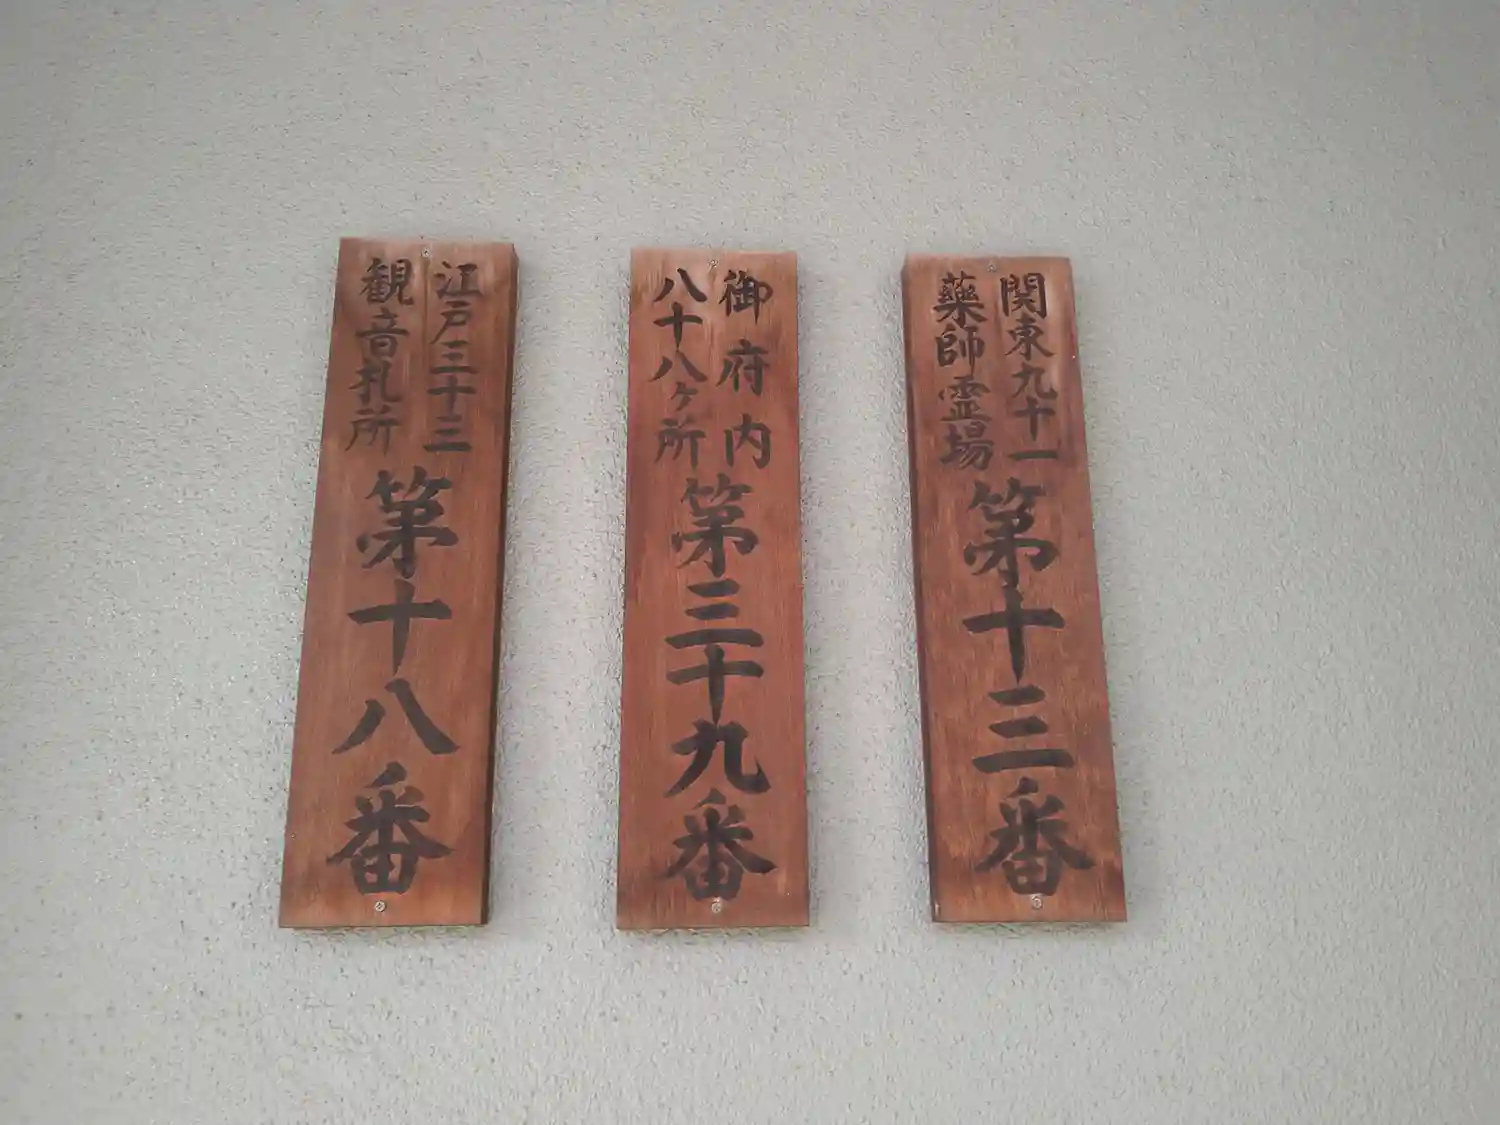 関東九十一
薬師霊場
第十三番
御府内
八十八ヶ所
第三十九番
江戸三十三
観音札所
第十八番